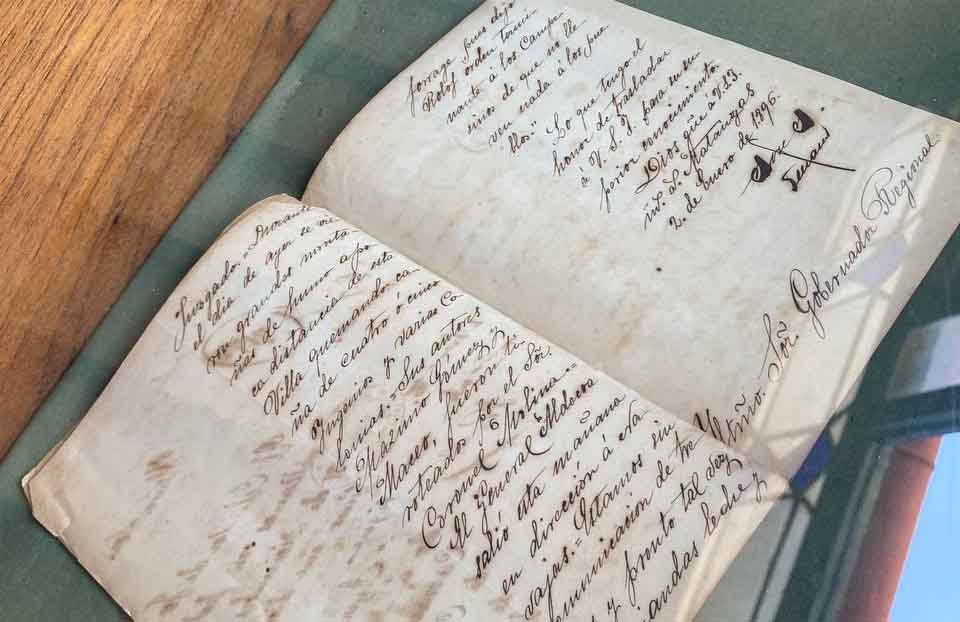 Juzgado.- Durante
el dia de ayer se vie
ron grandes monta
ñas de humo a po
ca distancia de esta
Villa quemando ca
ña de cuatro ó cinco
Ingenios y varias Co
lonias.- Sus autores
Máximo Gomez y
Maceo, fueron ti
roteados por el Sõr.
Coronel Molina.-
El General Aldecoa
salió esta mañana
en dirección á esta
vajas.- Estamos sin
comunicacion de tre
y pronto tal vez
leche y
forrage pues dijo
orden termi
nante á los Campe
sinos de que no lle
ven nada á los pue
blos." Lo que tengo el
honor de trasladar
á V. S. Y. para su su
perior conocimiento.
Dios gũe a V.S.
Matanzas
2. de Enero de 1896.
Sõr. Gobernador Regional.